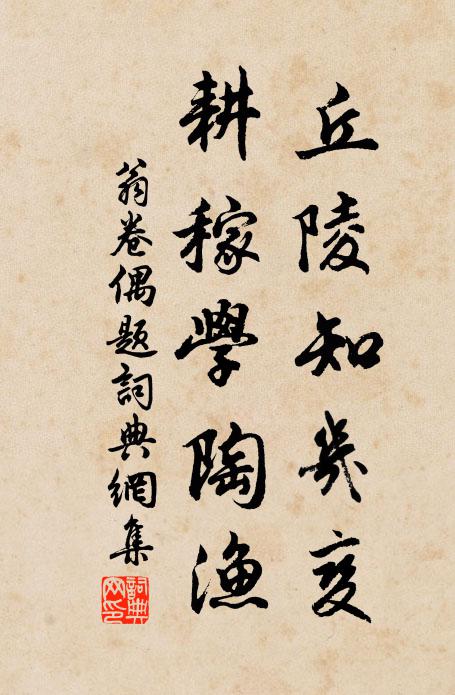 丘陵知幾変
耕稼學陶漁
翁卷偶題詞典網集
詞典網印